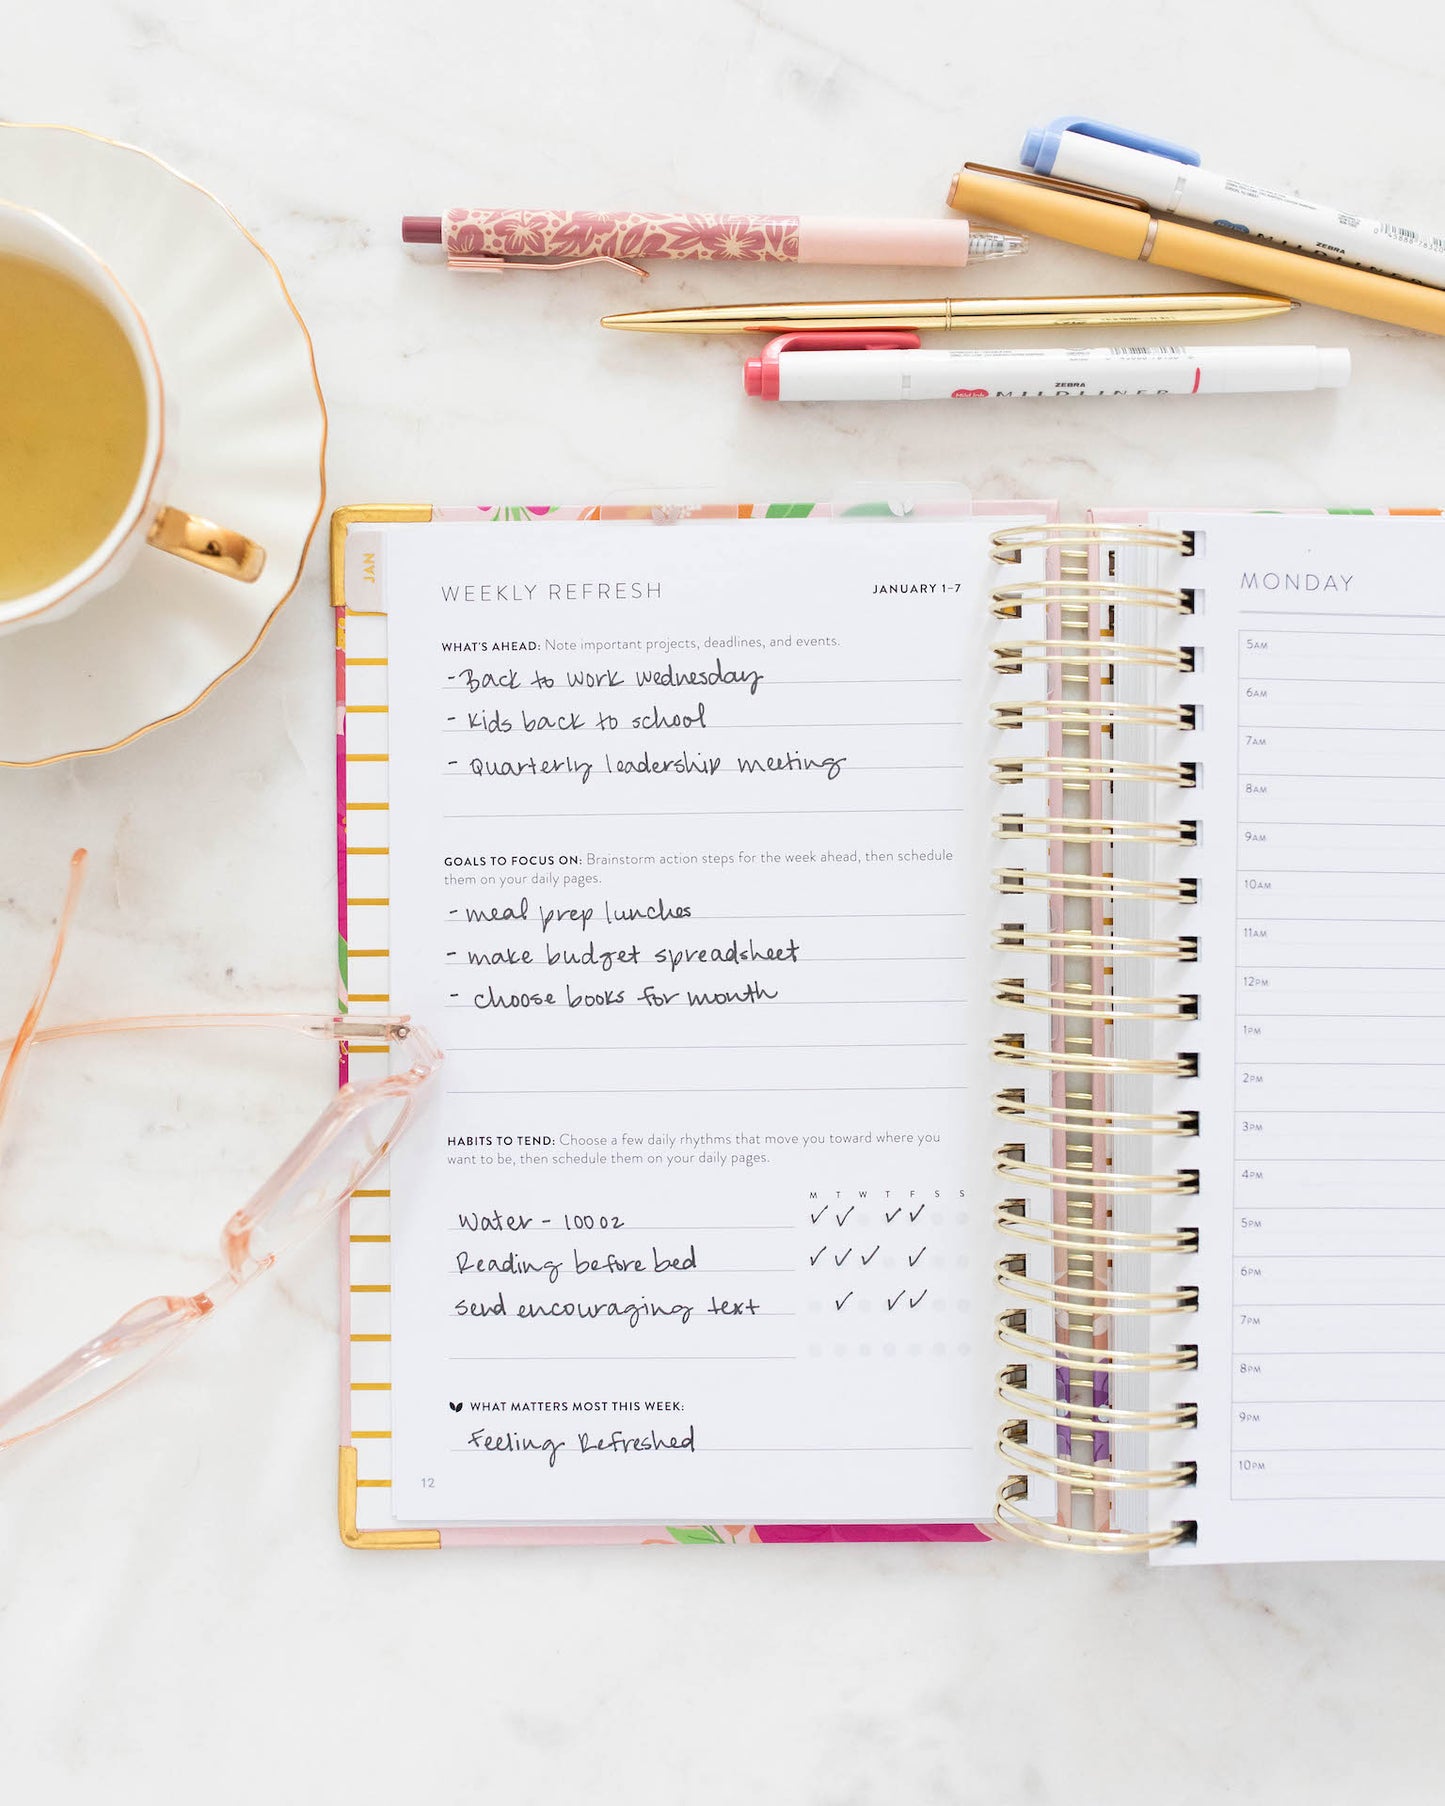 ZEBRA
ZEBRA
MILDLINER
JAN
WEEKLY REFRESH
JANUARY 1–7
WHAT'S AHEAD: Note important projects, deadlines, and events.
- Back to work Wednesday
- Kids back to school
- Quarterly leadership meeting
GOALS TO FOCUS ON: Brainstorm action steps for the week ahead, then schedule
them on your daily pages.
- meal prep lunches
- make budget spreadsheet
- choose books for month
HABITS TO TEND: Choose a few daily rhythms that move you toward where you
want to be, then schedule them on your daily pages.
M T W T F S S
Water - 100 oz
Reading before bed
Send encouraging text
WHAT MATTERS MOST THIS WEEK:
Feeling Refreshed
12
MONDAY
5AM
6AM
7AM
8AM
9AM
10AM
11AM
12PM
1PM
2PM
3PM
4PM
5PM
6PM
7PM
8PM
9PM
10PM